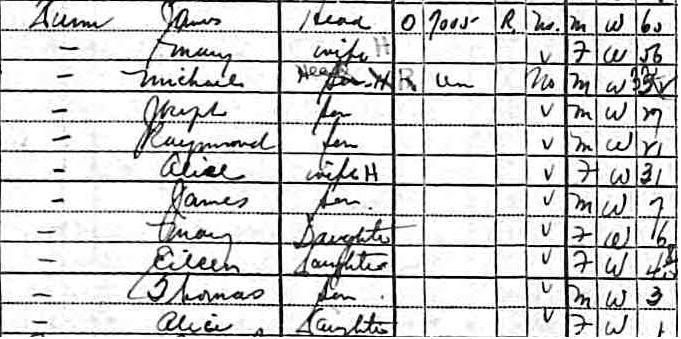 Dunn James Head O 7000 R. No. M W 60
— Mary wife H v F W 56
— Michael Head son H R un No M W 33 v
— Joseph son v M W 27
— Raymond son v M W 21
— Alice wife H v F W 31
— James son v M W 7
— Mary Daughter v F W 6
— Eileen Daughter v F W
— Thomas son v M W 3
— Alice Daughter v F W 1